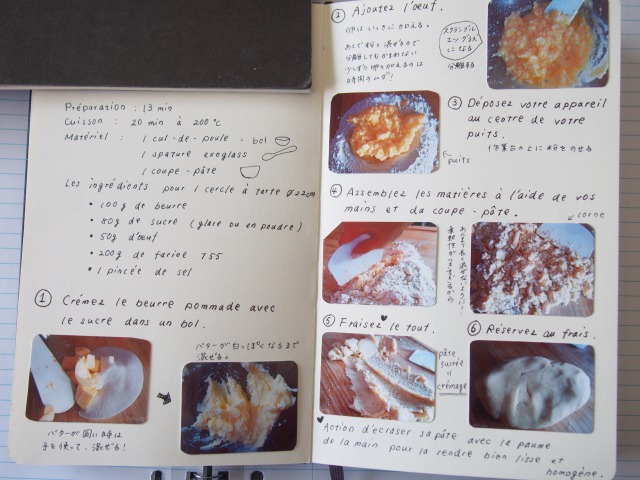 Préparation : 13 min
Cuisson : 20 min à 200°C
Matériel : 1 cul-de-poule = bol
1 spature exoglass
1 coupe-pâte
Les ingrédients pour 1 cercle à tarte ø22cm
• 100g de beurre
• 80g de sucre (glace ou en poudre)
• 50g d'œuf
• 200g de farine T55
• 1 pincée de sel
① Crémez le beurre pommade avec
le sucre dans un bol.
バターが白っぽくなるまで
混ぜる。
バターが固い時は
手を使って、混ぜる!
② Ajoutez l'œuf.
卵はいっきに加える。
あとで粉と混ぜるので
分離してもかまわない
少しずつ卵を加えるのは
時間のムダ!
スクランブル
エッグ状
になる
homogène
③ Déposez votre appareil
au centre de votre
puits.
作業台の上に粉をのせる
puits
④ Assemblez les matières à l'aide de vos
mains et du coupe-pâte.
corne
⑤ Fraisez le tout.
pâte
sucrée
crémage
⑥ Réservez au frais.
Action d'écraser sa pâte avec le paume
de la main pour la rendre bien lisse et
homogène.